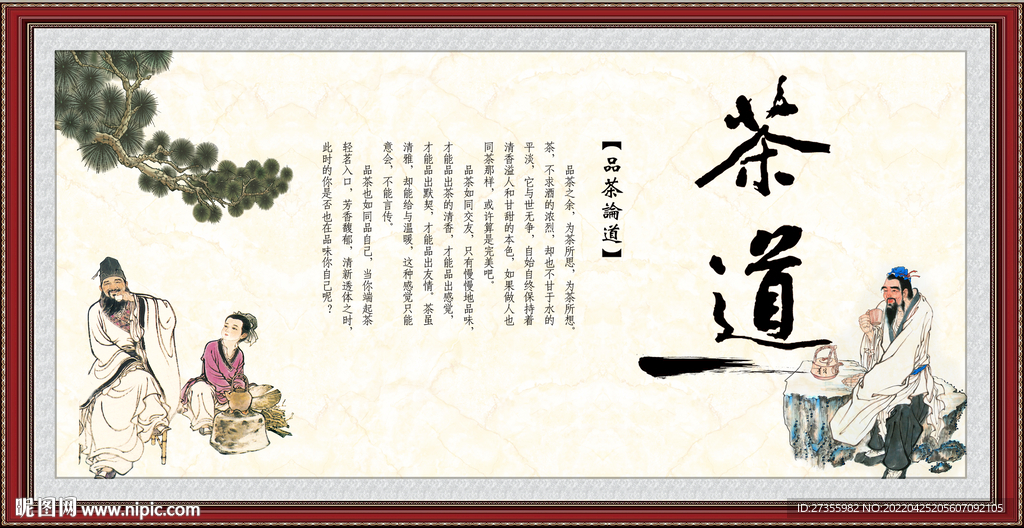 茶道
【品茶論道】
品茶之余，为茶所思，为茶所想。
茶，不求酒的浓烈，却也不甘于水的
平淡，它与世无争，自始自终保持着
清香溢人和甘甜的本色，如果做人也
同茶那样，或许算是完美吧。
品茶如同交友，只有慢慢地品味，
才能品出茶的清香，才能品出感觉，
才能品出默契，才能品出友情。茶虽
清雅，却能给与温暖，这种感觉只能
意会，不能言传。
品茶也如同品自己，当你端起茶
轻茗入口，芳香馥郁，清新透体之时，
此时的你是否也在品味你自己呢？
昵图网 www.nipic.com
ID:27355982 NO:20220425205607092105